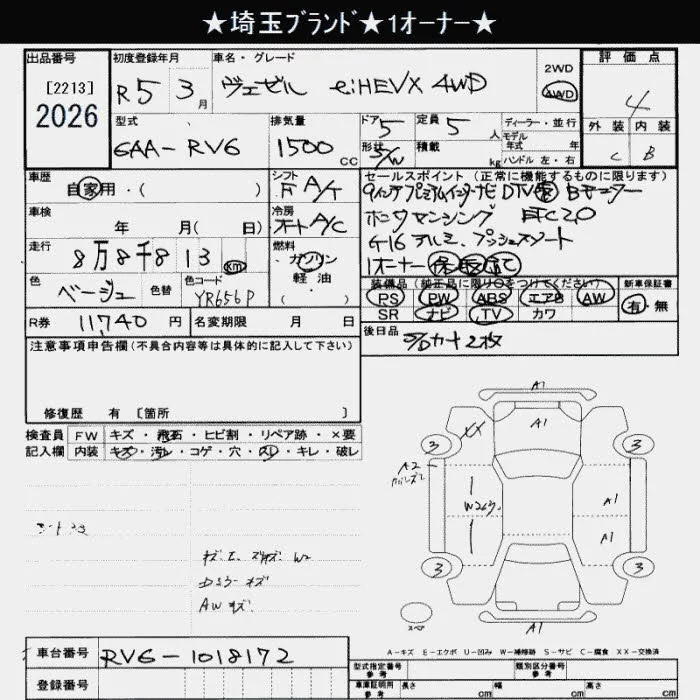 ★埼玉ブランド★1オーナー★
出品番号
[2213]
2026
初度登録年月
R5 3月
車名・グレード
ヴェゼル e:HEVX 4WD
2WD
4WD
評価点
4
外装 内装
C B
型式
6AA-RV6
排気量
1500 CC
ドア
5
形状
5/W
定員
5 人
積載
kg
ディーラー・並行
モデル
年式 年
ハンドル 左・右
車歴
自家用・( )
シフト
F A/T
車検
年 月( 日)
冷房
オートA/C
走行
8万8千813 km
燃料
ガソリン
軽油
( )
色
ベージュ
色替
色コード
YR656P
R券
11740 円
名変期限
月 日
セールスポイント(正常に機能するものに限ります)
9インチプレミアムインターナビ DTV Bモニター
ホンダセンシング ETC2.0
16アルミ、プッシュスタート
1オーナー
装備品(純正品に限り○をつけてください)
PS PW ABS エアB AW
SR ナビ TV カワ
新車保証書
有・無
後日品
S/Dカード2枚
注意事項申告欄(不具合内容等は具体的に記入して下さい)
修復歴 有 [箇所 ]
検査員
記入欄
FW キズ・飛石・ヒビ割・リペア跡・×要
内装 キズ・汚レ・コゲ・穴・スレ・キレ・破レ
A1
A1
XX
3
3
A2
W2
A1
A1
3
3
スペア
A1
キズ、エ、 W2
AWキズ
A-キズ E-エクボ U-凹み W-補修跡 S-サビ C-腐食 XX-交換済
車台番号
RV6-1018172
登録番号
型式指定番号
類別区分番号
車庫証明用
参考
長さ cm
幅 cm
高さ cm